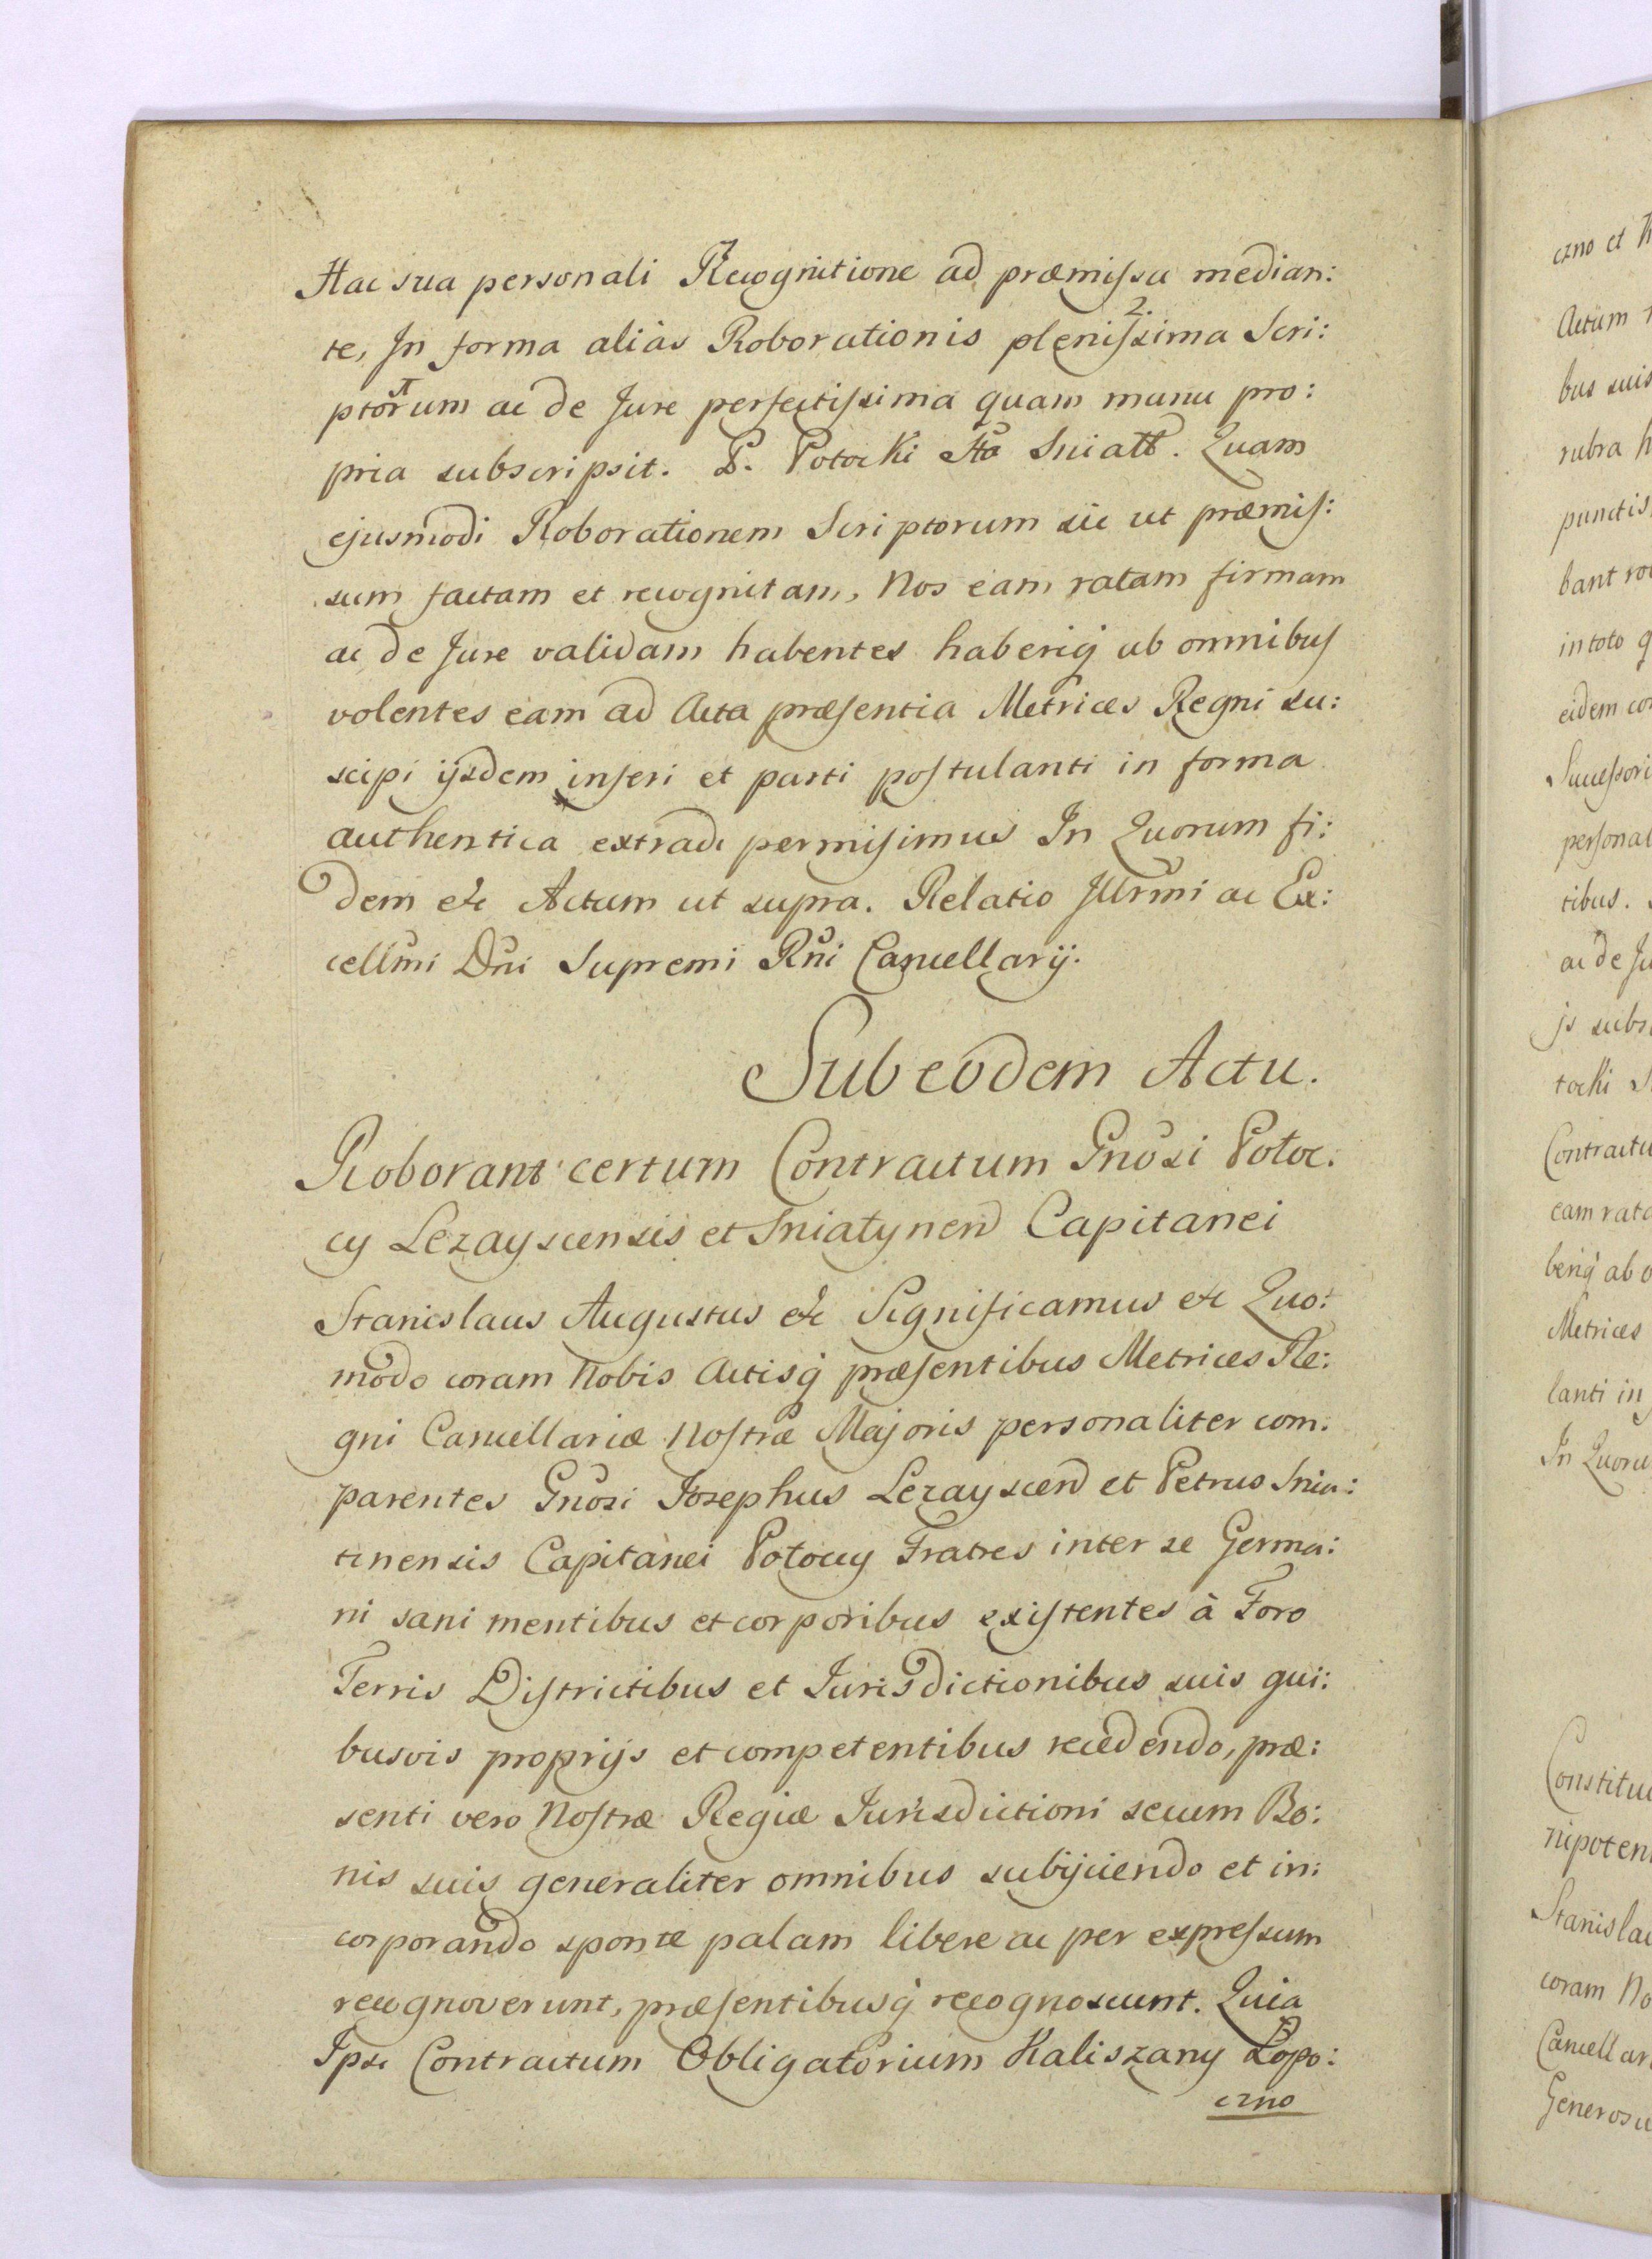 Hac sua personali Recognitione ad præmissa median:
te, In forma aliàs Roborationis plenissima 2. Scri:
ptorum ac de Jure perfectissima quam manu pro:
pria subscripsit. P. Potocki Sta Sniatt. Quam
ejusmodi Roborationem Scriptorum sic ut præmis:
sum factam et recognitam, Nos eam ratam firmam
ac de Jure validam habentes haberiq ab omnibus
volentes eam ad Acta præsentia Metrices Regni su:
scipi ijsdem inseri et parti postulanti in forma
authentica extradi permisimus In Quorum fi:
dem etc Actum ut supra. Relatio Jllrmi ac Ex:
cellmi Dni Supremi Rni Cancellarij.
Sub eodem Actu.
Roborant certum Contractum Gnosi Potoc:
cy Lezayscensis et Sniatynen Capitanei
Stanislaus Augustus etc Significamus etc Quo:
modo coram Nobis Actisq præsentibus Metrices Re:
gni Cancellariæ Nostræ Majoris personaliter com:
parentes Gnosi Josephus Lezayscen et Petrus Snia:
tinensis Capitanei Potoccy Fratres inter se Germa:
ni sani mentibus et corporibus existentes à Foro
Terris Districtibus et Jurisdictionibus suis qui:
busvis proprijs et competentibus recedendo, præ:
senti vero Nostræ Regiæ Jurisdictioni secum Bo:
nis suis generaliter omnibus subijciendo et in:
corporando sponte palam libere ac per expressum
recognoverunt, præsentibusq recognoscunt. Quia
Ipsi Contractum Obligatorium Kaliszany Łopo:
czno
czno et
Actum
bus suis
rubra
punctis,
bant
in toto q
eidem
Successori
personal
tibus.
ac de Ju
js subs
tocki S
Contractu
eam rat
beriq ab o
Metrices
lanti in
In Quoru
Constitu
nipoten
Stanisla
coram No
Cancellar
Generos